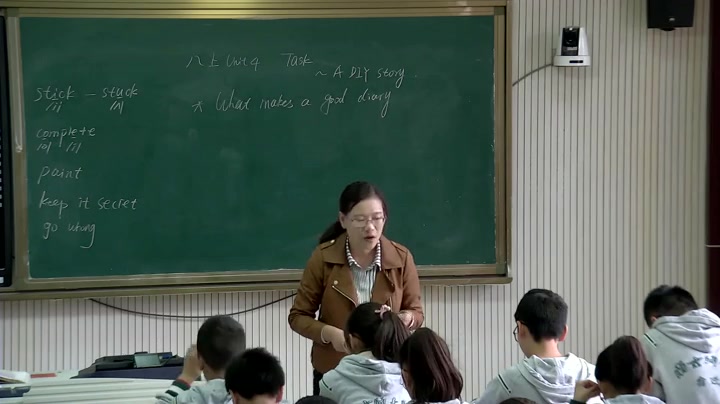 八上 Unit 4 Task
~ A DIY story
* What makes a good diary
stick – stuck
/ɪ/ /ʌ/
complete
/ə/ /iː/
paint
keep it secret
go wrong